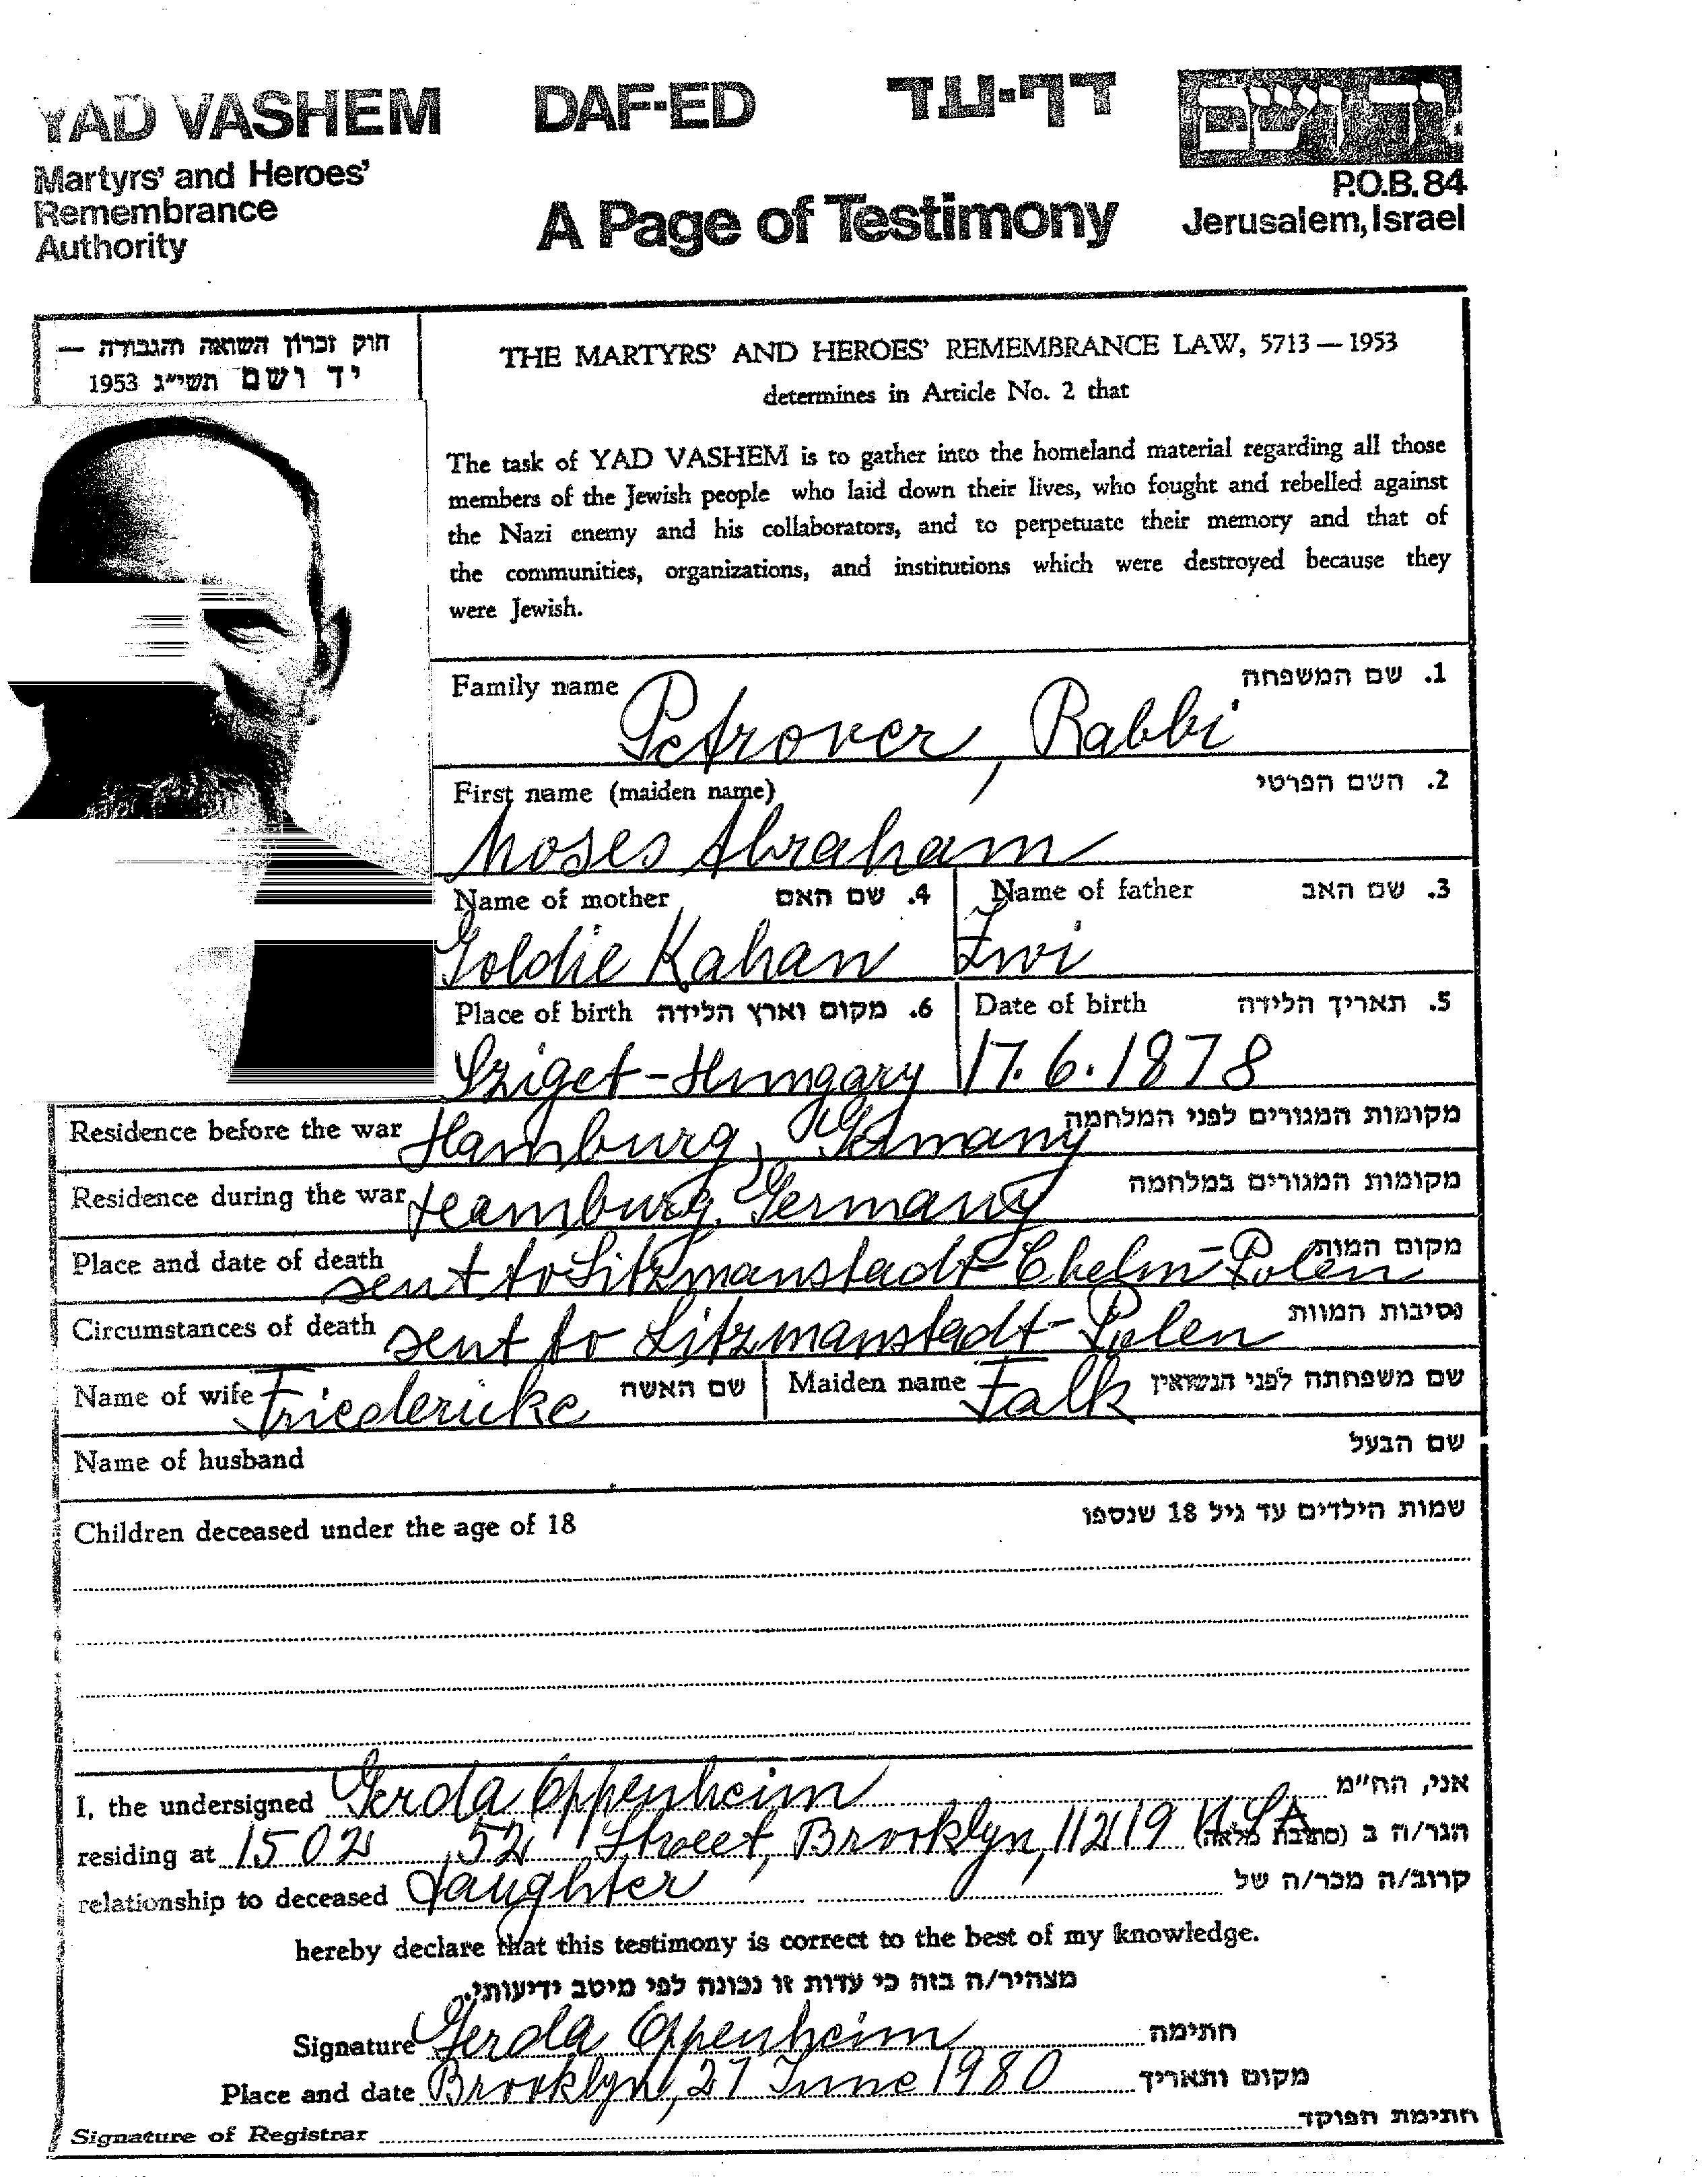 YAD VASHEM DAF-ED דף-עד יד ושם
Martyrs' and Heroes'
Remembrance
Authority
A Page of Testimony
P.O.B. 84
Jerusalem, Israel
חוק זכרון השואה והגבורה —
יד ושם תשי"ג 1953
THE MARTYRS' AND HEROES' REMEMBRANCE LAW, 5713 — 1953
determines in Article No. 2 that
The task of YAD VASHEM is to gather into the homeland material regarding all those
members of the Jewish people who laid down their lives, who fought and rebelled against
the Nazi enemy and his collaborators, and to perpetuate their memory and that of
the communities, organizations, and institutions which were destroyed because they
were Jewish.
Family name 1. שם המשפחה
Petrover, Rabbi
First name (maiden name) 2. השם הפרטי
Moses Abraham
Name of mother 4. שם האם Name of father 3. שם האב
Goldie Kahan Zwi
Place of birth 6. מקום וארץ הלידה Date of birth 5. תאריך הלידה
Sziget-Hungary 17.6.1878
Residence before the war Hamburg, Germany מקומות המגורים לפני המלחמה
Residence during the war Hamburg, Germany מקומות המגורים במלחמה
Place and date of death sent to Litzmanstadt-Chelm-Polen מקום המות
Circumstances of death sent to Litzmanstadt-Polen נסיבות המוות
Name of wife Friedericke שם האשה Maiden name Falk שם משפחתה לפני הנשואין
Name of husband שם הבעל
Children deceased under the age of 18 שמות הילדים עד גיל 18 שנספו
I, the undersigned Gerda Oppenheim אני, הח"מ
residing at 1502 52 Street, Brooklyn, 11219 USA הגר/ה ב (כתובת מלאה)
relationship to deceased daughter קרוב/ה מכר/ה של
hereby declare that this testimony is correct to the best of my knowledge.
מצהיר/ה בזה כי עדות זו נכונה לפי מיטב ידיעותי.
Signature Gerda Oppenheim חתימה
Place and date Brooklyn, 27 June 1980 מקום ותאריך
Signature of Registrar חתימת הפוקד